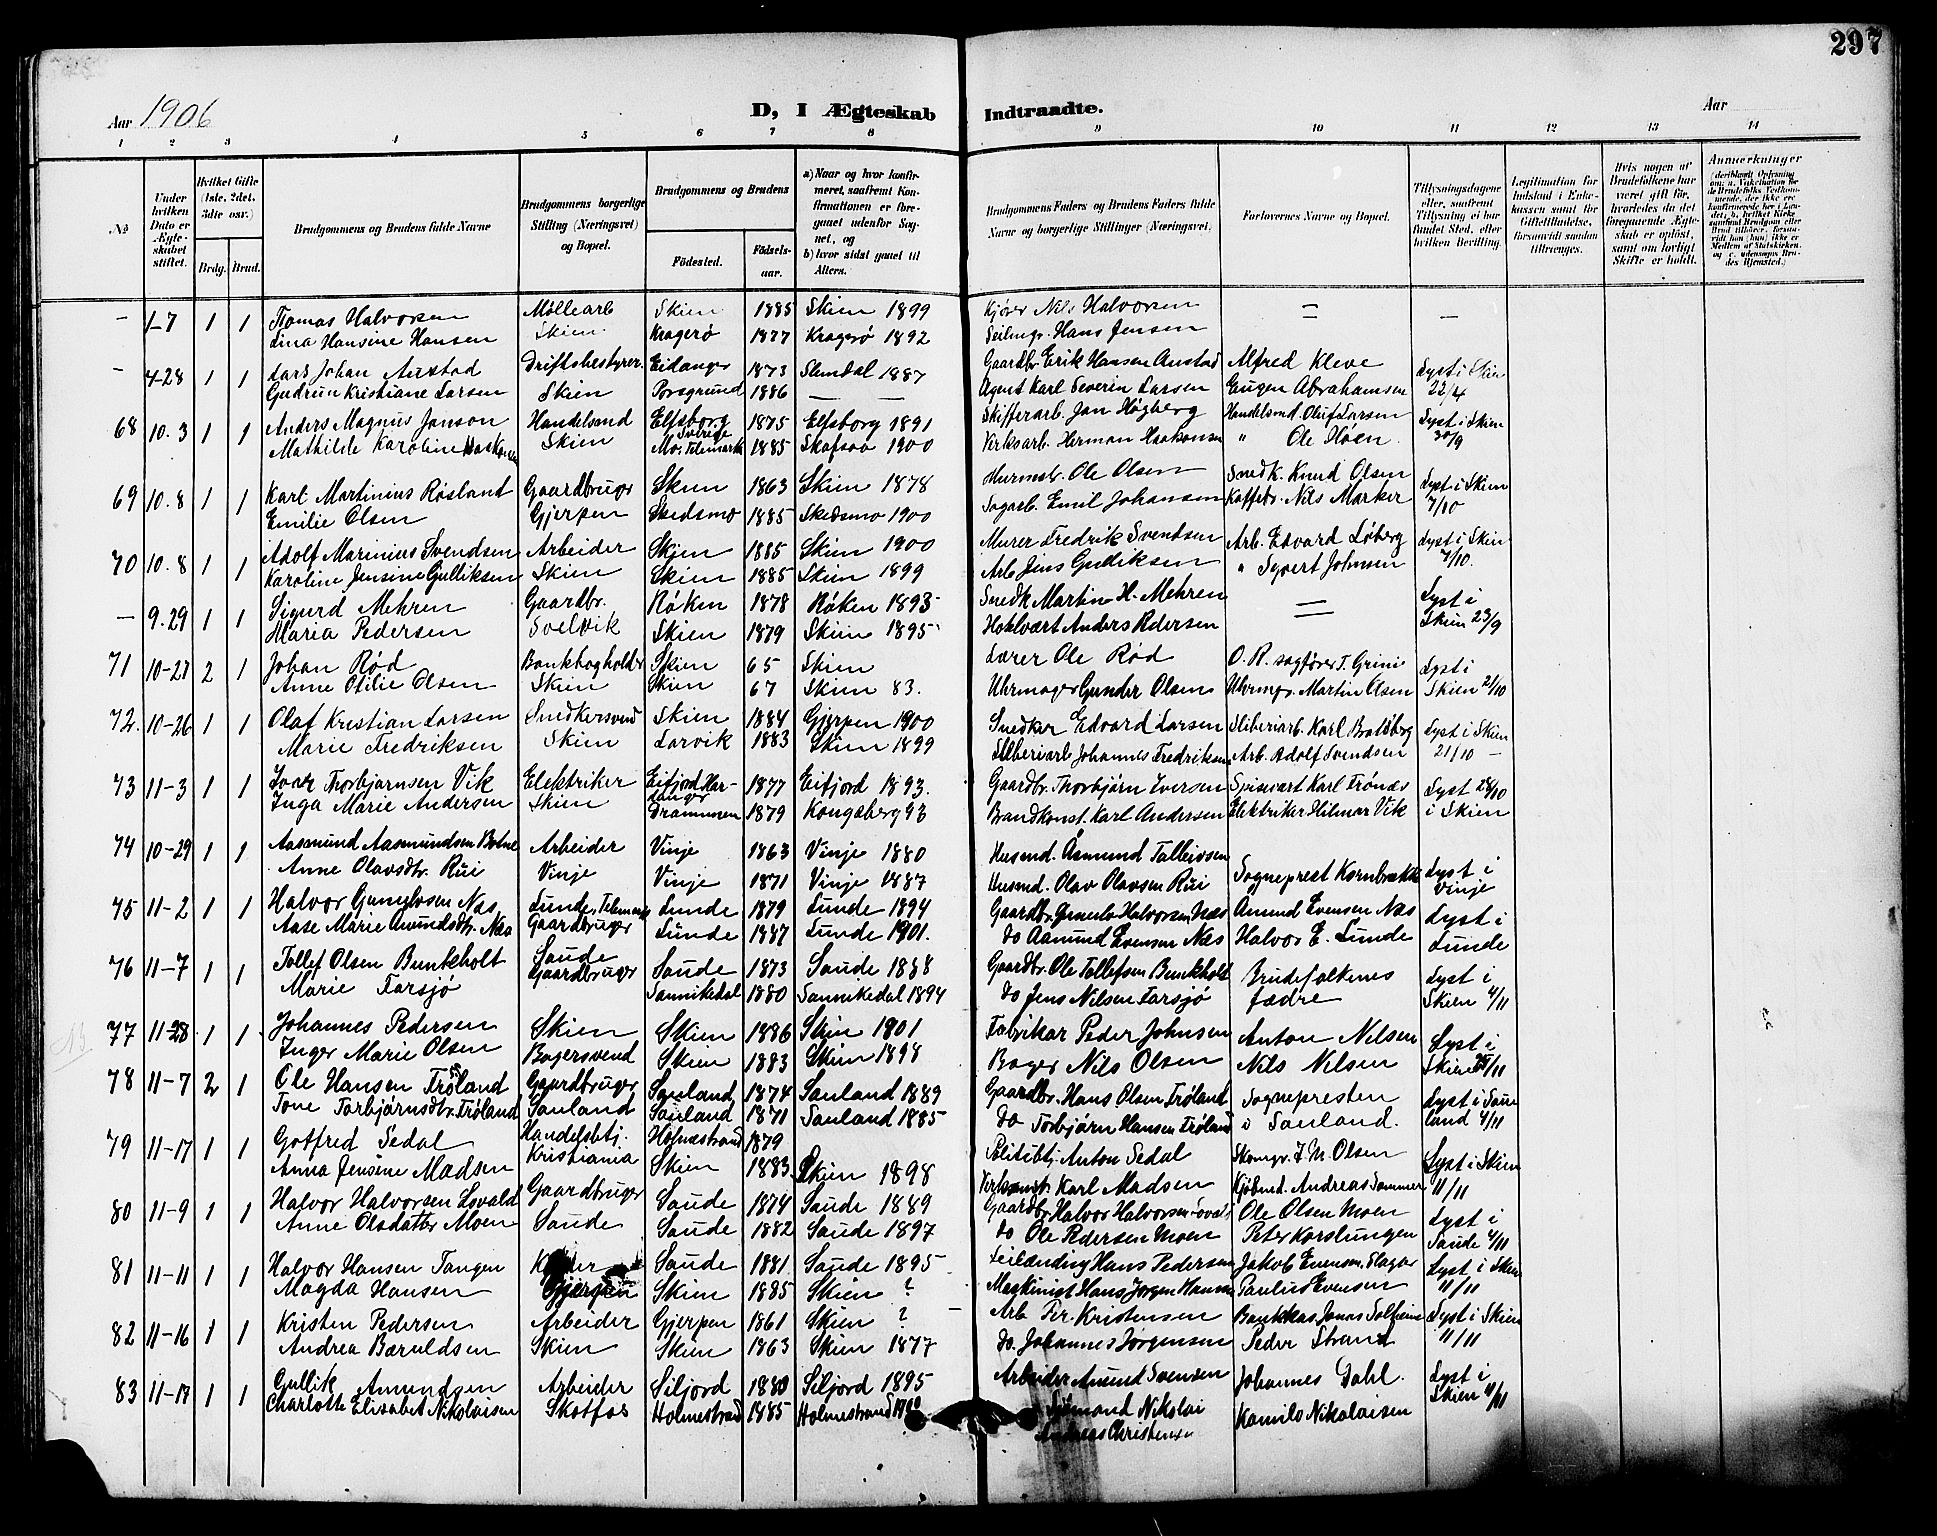 297
Aar 1906
D, I Ægteskab Indtraadte.
Aar
1 2 3 4 5 6 7 8 9 10 11 12 13 14
No
Under hvilken Dato er Ægteskabet stiftet.
Hvilket Gifte (1ste, 2det, 3die osv.)
Brdg. Brud.
Brudgommens og Brudens fulde Navne
Brudgommens borgerlige Stilling (Næringsvei) og Bopæl.
Brudgommens og Brudens
Fødested. Fødselsaar.
a) Naar og hvor konfirmeret, saafremt Konfirmationen er foregaaet udenfor Sognet, og
b) hvor sidst gaaet til Alters.
Brudgommens Faders og Brudens Faders fulde Navne og borgerlige Stillinger (Næringsvei).
Forlovernes Navne og Bopæl.
Tillysningsdagene eller, saafremt Tillysning ei har fundet Sted, efter hvilken Bevilling.
Legitimation for Indskud i Enkekassen samt for Giftetilladelse, forsaavidt saadan tiltrænges.
Hvis nogen af Brudefolkene har været gift før, hvorledes da det foregaaende Ægteskab er opløst, samt om lovligt Skifte er holdt.
Anmærkninger
— 1-7 1 1 Thomas Halvorsen Møllearb Skien 1885 Skien 1899 Kjører Nils Halvorsen = —
Lina Hansine Hansen Skien. Kragerø 1877 Kragerø 1892 Seilmgr. Hans Jensen
— 4-28 1 1 Lars Johan Anstad Driftsbestyrer Eidanger 1873 Slemdal 1887 Gaardbr Erik Hansen Anstad Alfred Kleve Lyst i Skien
Gudrun Kristiane Larsen Skien Porsgrund 1886 — — Agent Karl Severin Larsen Eugen Abrahamsen 22/4
68 10.3 1 1 Anders Magnus Janson Handelsmd Elfsborg Sverige 1875 Elfsborg 1891 Skifferarb. Jan Høgberg Handelsmd. Oluf Larsen Lyst i Skien
Mathilde Karoline Haakonsen Skien Mo, Telemark 1885 Skafsaa 1900 Verksarb. Herman Haakonsen " Ole Høen. 30/9
69 10.8 1 1 Karl Martinius Røsland Gaardbruger Skien 1863 Skien 1878 Murmstr. Ole Olsen Snedk. Knud Olsen Lyst i Skien
Emilie Olsen Gjerpen Skedsmo 1885 Skedsmo 1900 Sagarb. Emil Johansen Kaffebr. Nils Marker 7/10
70 10.8 1 1 Adolf Marinius Svendsen Arbeider Skien 1885 Skien 1900 Murer Fredrik Svendsen Arb. Edvard Løberg Lyst i Skien
Karoline Jensine Gulliksen Skien Skien 1885 Skien 1899 Arb Jens Gulliksen " Syvert Johnsen 7/10.
— 9.29 1 1 Sigurd Mehren Gaardbr. Røken 1878 Røken 1893 Snedk Martin H. Mehren = Lyst i
Maria Pedersen Svelvik Skien 1879 Skien 1895 Anders Pedersen Skien 23/9
71 10-27 2 1 Johan Rød Bankbogholder Skien 65 Skien Lærer Ole Rød O. R. sagfører T. Grini Lyst i
Anne Otilie Olsen Skien Skien 67 Skien 83. Uhrmager Gunder Olsen Uhrmgr. Martin Olsen Skien 21/10
72. 10-26 1 1 Olaf Kristian Larsen Snedkersvend Skien 1884 Gjerpen 1900 Snedker Edvard Larsen Sliberiarb. Karl Bratsberg Lyst i Skien
Marie Fredriksen Skien Larvik 1883 Skien 1899 Sliberiarb Johannes Fredriksen Arb. Adolf Svendsen 21/10 —
73 11-3 1 1 Ivar Thorbjørnsen Vik Elektriker Eifjord Hardanger 1877 Eifjord 1893. Gaardbr. Thorbjørn Iversen Spisevært Karl Trønæs Lyst 28/10
Inga Marie Andersen Skien Drammen 1879 Kongsberg 93 Brandkonst. Karl Andersen Elektriker Hilmar Vik i Skien
74 10-29 1 1 Aasmund Aasmundsen Botne Arbeider Vinje 1863 Vinje 1880 Husmd. Åsmund Talleivsen Sogneprest Kornbrekke Lyst i
Anne Olavsdtr. Rui Vinje Vinje 1871 Vinje 1887 Husmd. Olav Olavsen Rui Vinje
75 11-2 1 1 Halvor Gunulvsen Næs, Lunde, Telemark Lunde 1879 Lunde 1894 Gaardbr. Gunulv Halvorsen Næs Amund Evensen Næs Lyst i
Aase Marie Amundsdtr. Næs Gaardbruger Lunde 1887 Lunde 1901. do Aamund Evensen Næs Halvor E. Lunde Lunde
76 11-7 1 1 Tollef Olsen Bunkholt Saude Saude 1873 Saude 1888 Gaardbr. Ole Tollefsen Bunkholt Brudefolkenes Lyst i
Marie Farsjø Gaardbruger Sannikedal 1880 Sannikedal 1894 do Jens Nilsen Farsjø fædre Skien 4/11
77 11-28 1 1 Johannes Pedersen Skien Skien 1886 Skien 1901 Fabrikar Peder Johnsen Anton Nilsen Lyst i
Inger Marie Olsen Bagersvend Skien 1883 Skien 1898 Bager Nils Olsen Nils Nilsen Skien 25/11
78 11-7 2 1 Ole Hansen Trøland Gaardbruger Sauland 1874 Sauland 1889 Gaardbr. Hans Olsen Trøland Sognepresten Lyst i Sau
Tone Torbjørnsdtr. Trøland Sauland Sauland 1871 Sauland 1885 do Torbjørn Hansen Trøland i Sauland. land 4/11
79 11-17 1 1 Gotfred Sedal Handelsbtj. Holmestrand 1879 Politibtj. Anton Sedal Skomgr. J. M. Olsen Lyst i Skien
Anna Jensine Madsen Kristiania Skien 1883 Skien 1898 Karl Madsen Kjøbmd. Andreas Sommer 11/11
80 11-9 1 1 Halvor Halvorsen Lovald Gaardbruger Saude 1874 Saude 1889 Gaardbr. Halvor Halvorsen Lovald Ole Olsen Moen Lyst i
Anne Olsdatter Moen Saude Saude 1882 Saude 1897 do Ole Pedersen Moen Peter Korslungen Saude 4/11
81 11-11 1 1 Halvor Hansen Tangen Saude 1881 Saude 1895 Seilænding Hans Pedersen Jakob Evensen. Lyst i Skien
Magda Hansen Gjerpen Skien 1885 Skien ? Maskinist Hans Jørgen Hansen Paulus Evensen 11/11
82 11-16 1 1 Kristen Pedersen Arbeider Gjerpen 1861 Skien ? Arb Per Kristensen Bankkas. Jonas Solheim Lyst i Skien
Andrea Baruldsen Skien Skien 1863 Skien 1877 do. Johannes Jørgensen Peder Strand 11/11
83 11-17 1 1 Gullik Amundsen Arbeider Siljord 1880 Siljord 1895 Arbeider Amund Svensen Johannes Dahl. Lyst i
Charlotte Elisabet Nikolaisen Skotfos Holmestrand 1885 Holmestrand Sømand Nikolai Andreas Christensen Kamilo Nikolaisen Skien 11/11